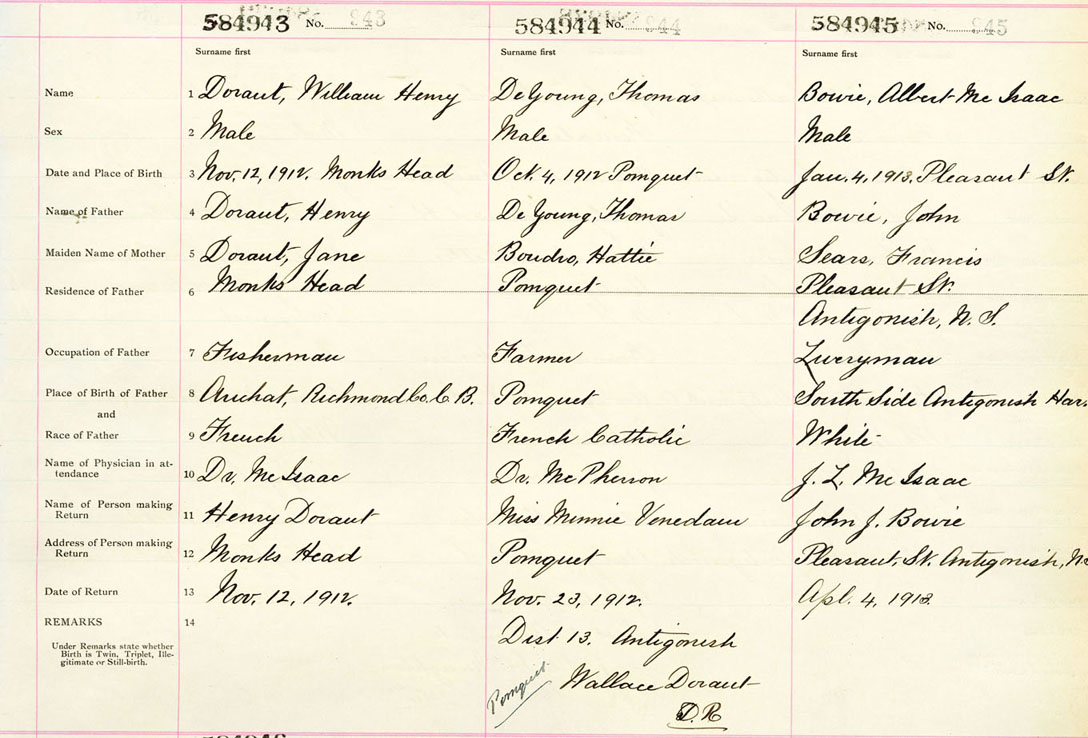 584943 No. 943 584944 No. 944 584945 No. 945
Surname first Surname first Surname first
Name 1 Doraut, William Henry DeYoung, Thomas Bowie, Albert Mc Isaac
Sex 2 Male Male Male
Date and Place of Birth 3 Nov. 12, 1912. Monks Head Oct. 4, 1912 Pomquet Jan. 4, 1913. Pleasant St.
Name of Father 4 Doraut, Henry De Young, Thomas Bowie, John
Maiden Name of Mother 5 Doraut, Jane Boudro, Hattie Sears, Francis
Residence of Father 6 Monks Head Pomquet Pleasant St.
Antigonish, N. S.
Occupation of Father 7 Fisherman Farmer Liveryman
Place of Birth of Father 8 Arichat, Richmond Co. C. B. Pomquet South Side Antigonish Har.
and
Race of Father 9 French French Catholic White
Name of Physician in at-
tendance 10 Dr. Mc Isaac Dr. Mc Pherson J. L. Mc Isaac
Name of Person making
Return 11 Henry Doraut Miss Minnie Venedam John J. Bowie
Address of Person making
Return 12 Monks Head Pomquet Pleasant, St. Antigonish, N.S
Date of Return 13 Nov. 12, 1912. Nov. 23, 1912. Apl. 4, 1913.
REMARKS 14
Under Remarks state whether
Birth is Twin, Triplet, Ille-
gitimate or Still-birth.
Dist 13. Antigonish
Pomquet Wallace Doraut
D. R
584946